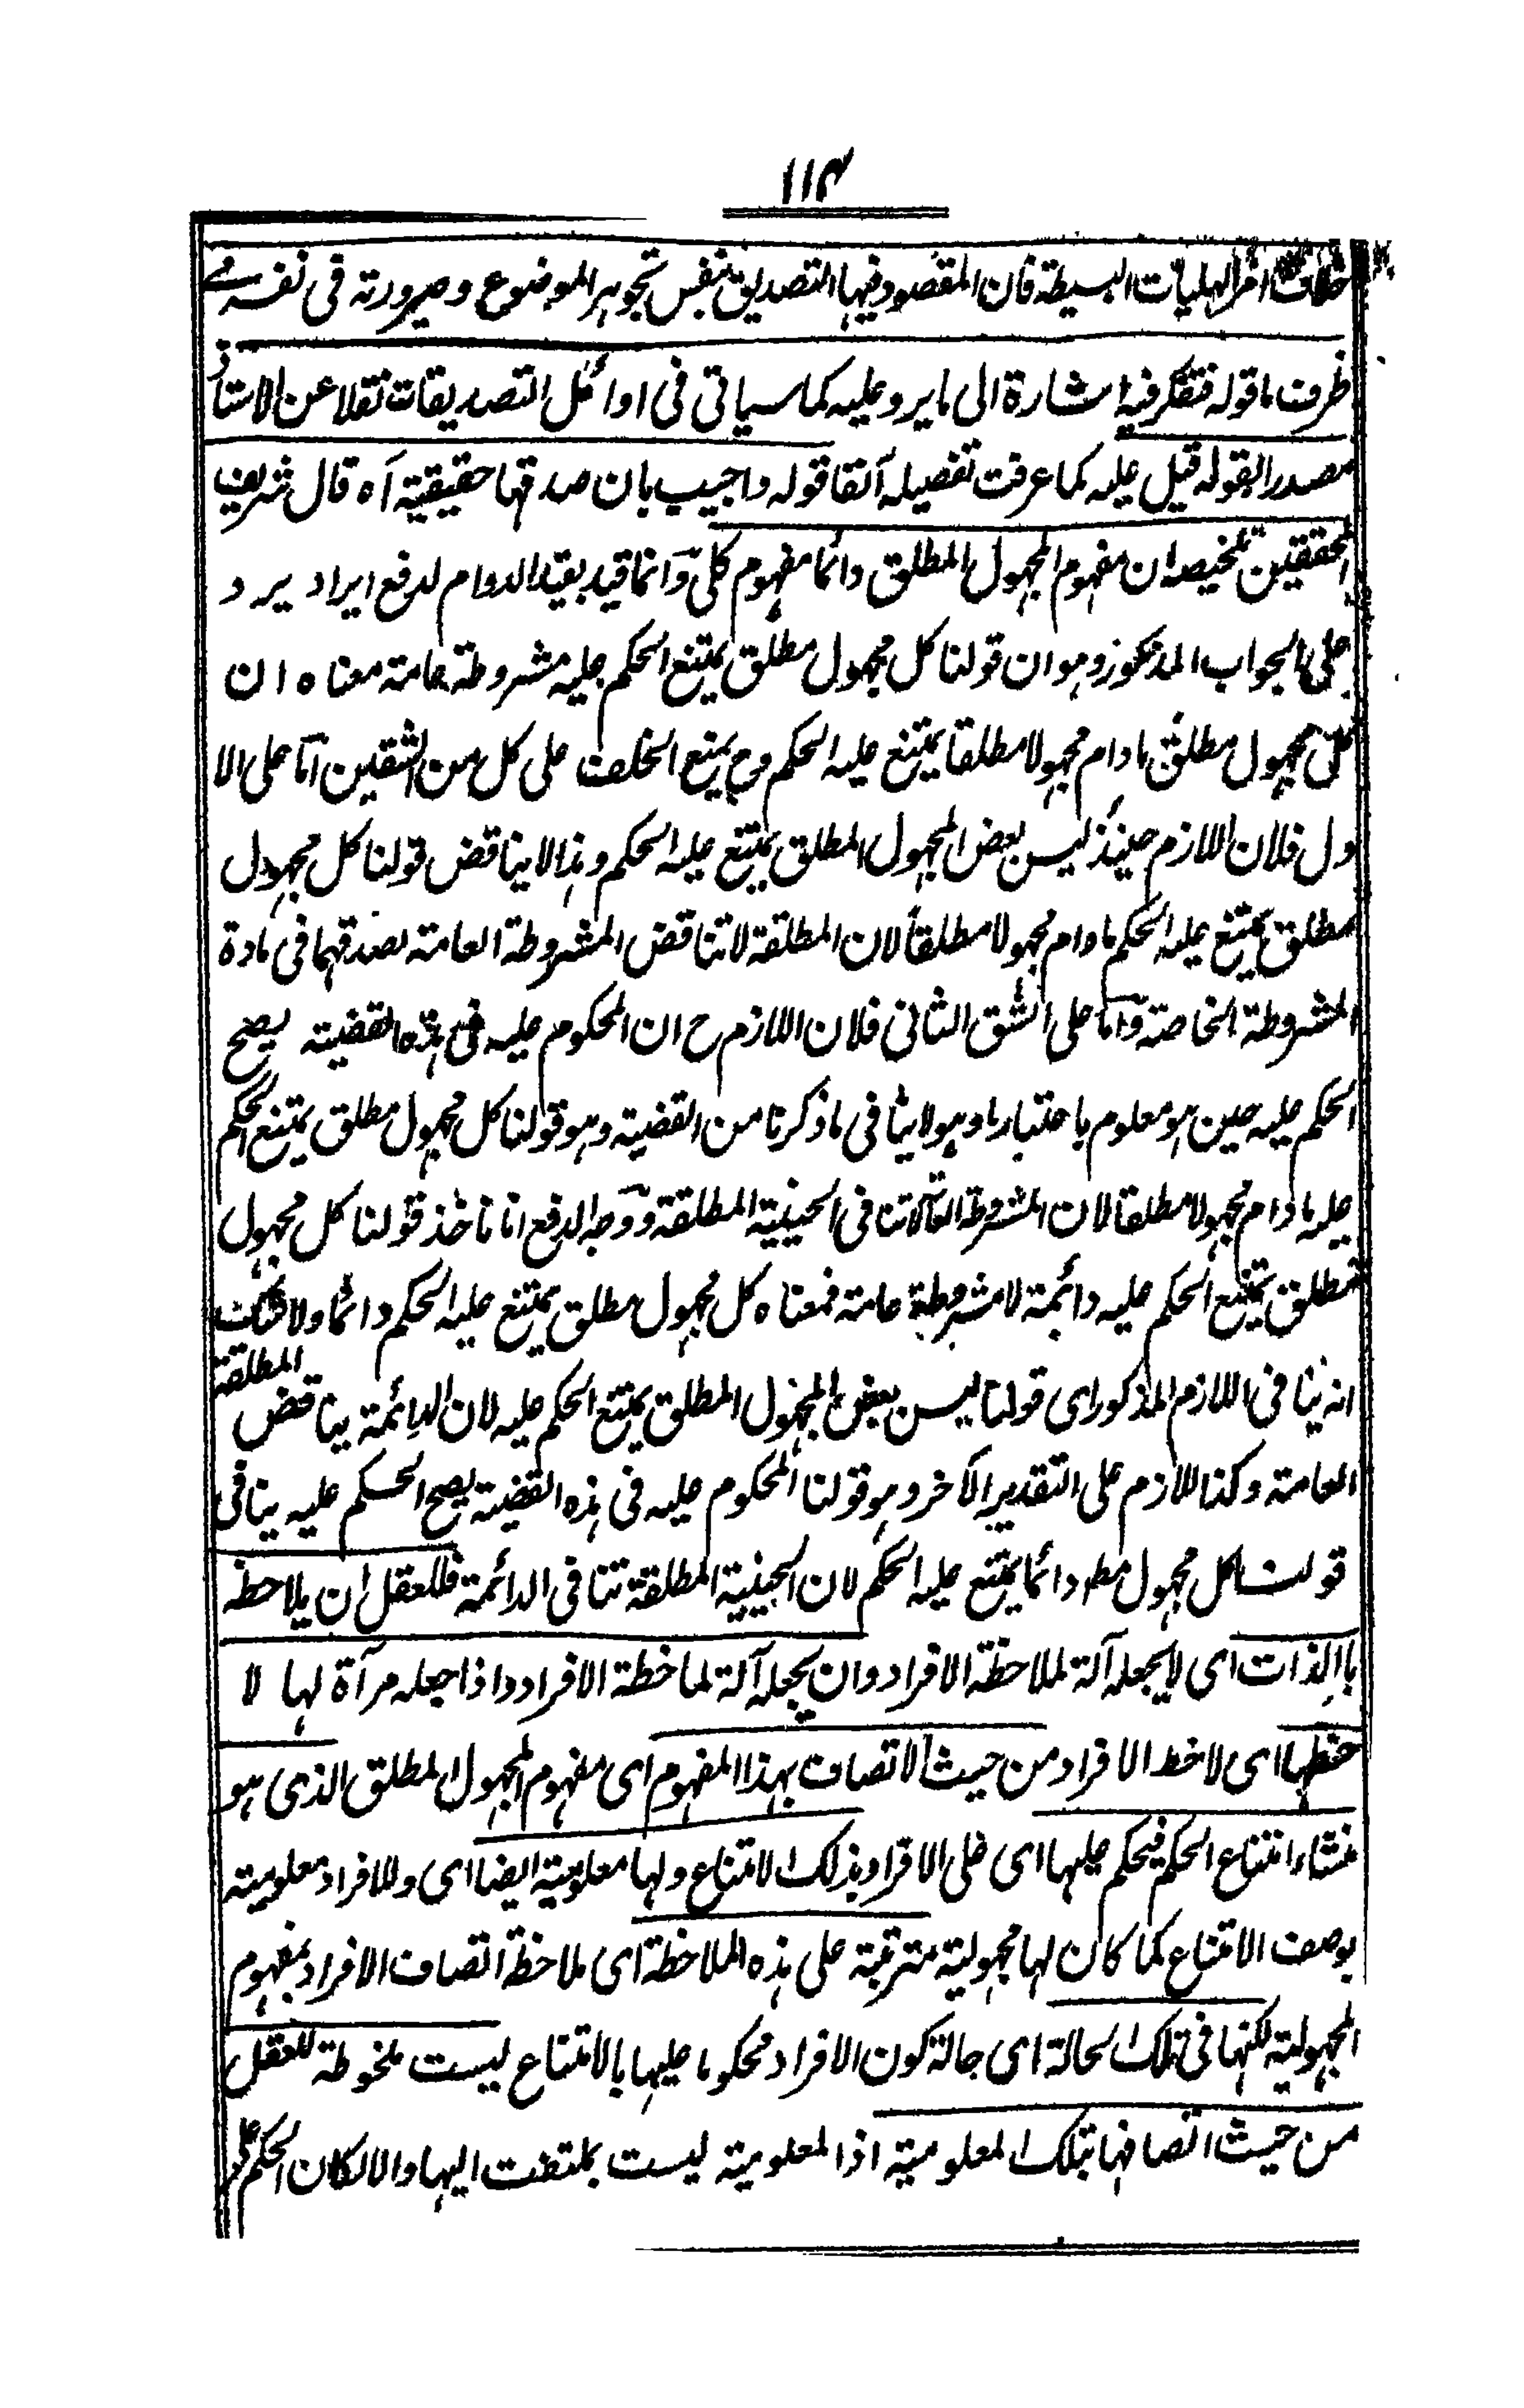 ١١٤
خلاف امر الهليات البسيطة فان المقصود فيها التصديق بنفس تجوهر الموضوع وصيرورته فى نفسه فے
ظرف ما قوله فتفكر فيه اشارة الى ما يرد عليه كما سياتى فى اوائل التصديقات نقلا عن الاستاذ
مصدرا بقوله قيل عليه كما عرفت تفصيله آنفا قوله واجيب بان صدقها حقيقية آه قال شريف
المحققين تلخيصه ان مفهوم المجهول المطلق دائما مفهوم كلى وانما قيد بقيد الدوام لدفع ايراد يرد
على الجواب المذكور وهو ان قولنا كل مجهول مطلق يمتنع الحكم عليه مشروطة عامة معناه ان
كل مجهول مطلق مادام مجهولا مطلقا يمتنع عليه الحكم وح يمنع الخلف على كل من الشقين اما على الا
ول فلان اللازم حينئذ ليس بعض المجهول المطلق يمتنع عليه الحكم وهذا لا يناقض قولنا كل مجهول
مطلق يمتنع عليه الحكم مادام مجهولا مطلقا لان المطلقة لا تناقض المشروطة العامة لصدقهما فى مادة
المشروطة الخاصة واما على الشق الثانى فلان اللازم ح ان المحكوم عليه فى هذه القضية يصح
الحكم عليه حين هو معلوم باعتبار ما وهو لا ينافى ما ذكرنا من القضية وهو قولنا كل مجهول مطلق يمتنع الحكم
عليه مادام مجهولا مطلقا لان المشروطة العامة لا تنافى الحينية المطلقة ووجه الدفع انا ناخذ قولنا كل مجهول
مطلق يمتنع الحكم عليه دائمة لا مشروطة عامة فمعناه كل مجهول مطلق يمتنع عليه الحكم دائما ولا شك
انه ينافى اللازم المذكور اى قولنا ليس بعض المجهول المطلق يمتنع الحكم عليه لان الدائمة يناقض المطلقة
العامة وكذا اللازم على التقدير الآخر وهو قولنا المحكوم عليه فى هذه القضية يصح الحكم عليه ينافى
قولنا كل مجهول مط دائما يمتنع عليه الحكم لان الحينية المطلقة تنافى الدائمة فللعقل ان يلاحظه
باالذات اى لا يجعله آلة لملاحظة الافراد وان يجعله آلة لملاحظة الافراد واذا جعله مرآة لها لا
حظها اى لاحظ الافراد من حيث الاتصاف بهذا المفهوم اى مفهوم المجهول المطلق الذى هو
منشاء امتناع الحكم فيحكم عليها اى على الافراد بذلك الامتناع ولها معلومية ايضا اى وللافراد معلومية
بوصف الامتناع كما كان لها مجهولية مترتبة على هذه الملاحظة اى ملاحظة اتصاف الافراد بمفهوم
المجهولية لكنها فى تلك الحالة اى حالة كون الافراد محكوما عليها بالامتناع ليست ملحوظة للعقل
من حيث اتصافها بتلك المعلومية اذ المعلومية ليست بملتفت اليها والا لكان الحكم على